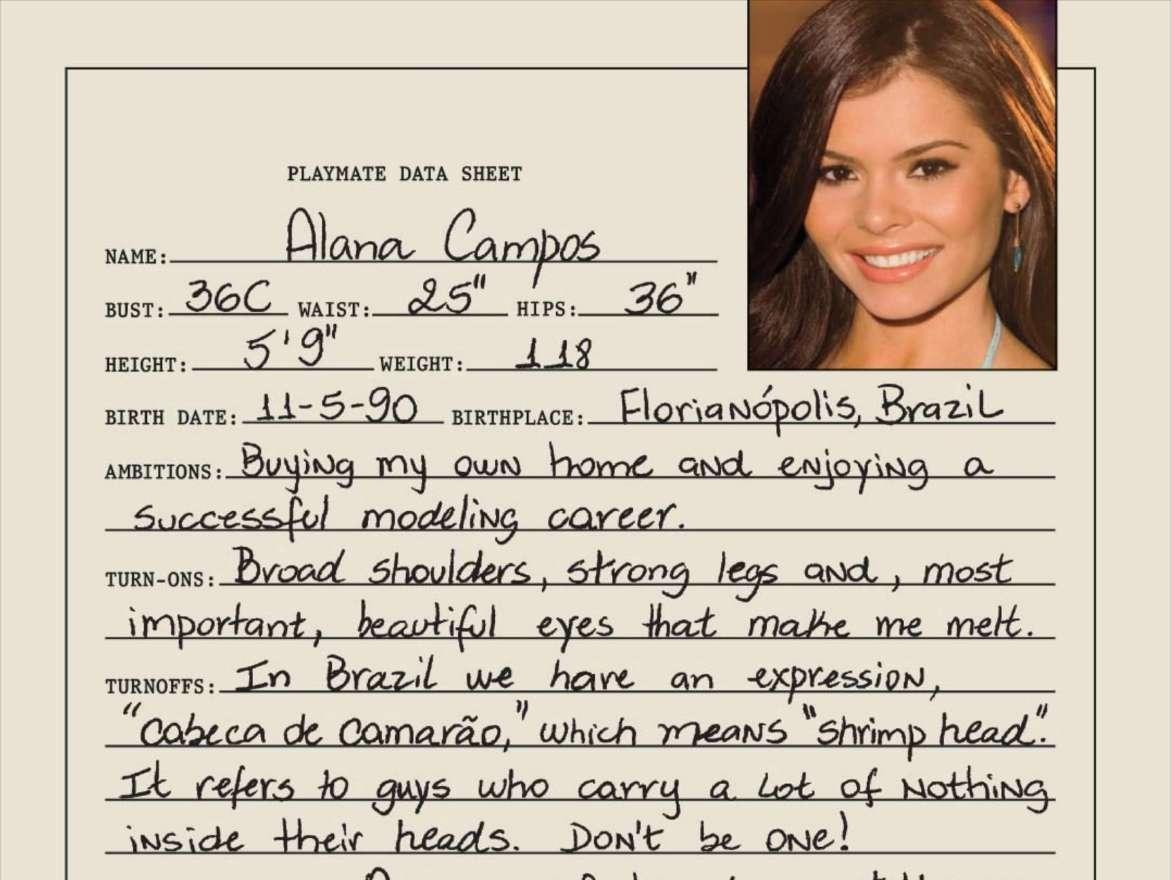 PLAYMATE DATA SHEET
NAME: Alana Campos
BUST: 36C WAIST: 25" HIPS: 36"
HEIGHT: 5'9" WEIGHT: 118
BIRTH DATE: 11-5-90 BIRTHPLACE: Florianópolis, Brazil
AMBITIONS: Buying my own home and enjoying a
successful modeling career.
TURN-ONS: Broad shoulders, strong legs and, most
important, beautiful eyes that make me melt.
TURNOFFS: In Brazil we have an expression,
"Cabeca de Camarão," which means "shrimp head."
It refers to guys who carry a lot of nothing
inside their heads. Don't be one!